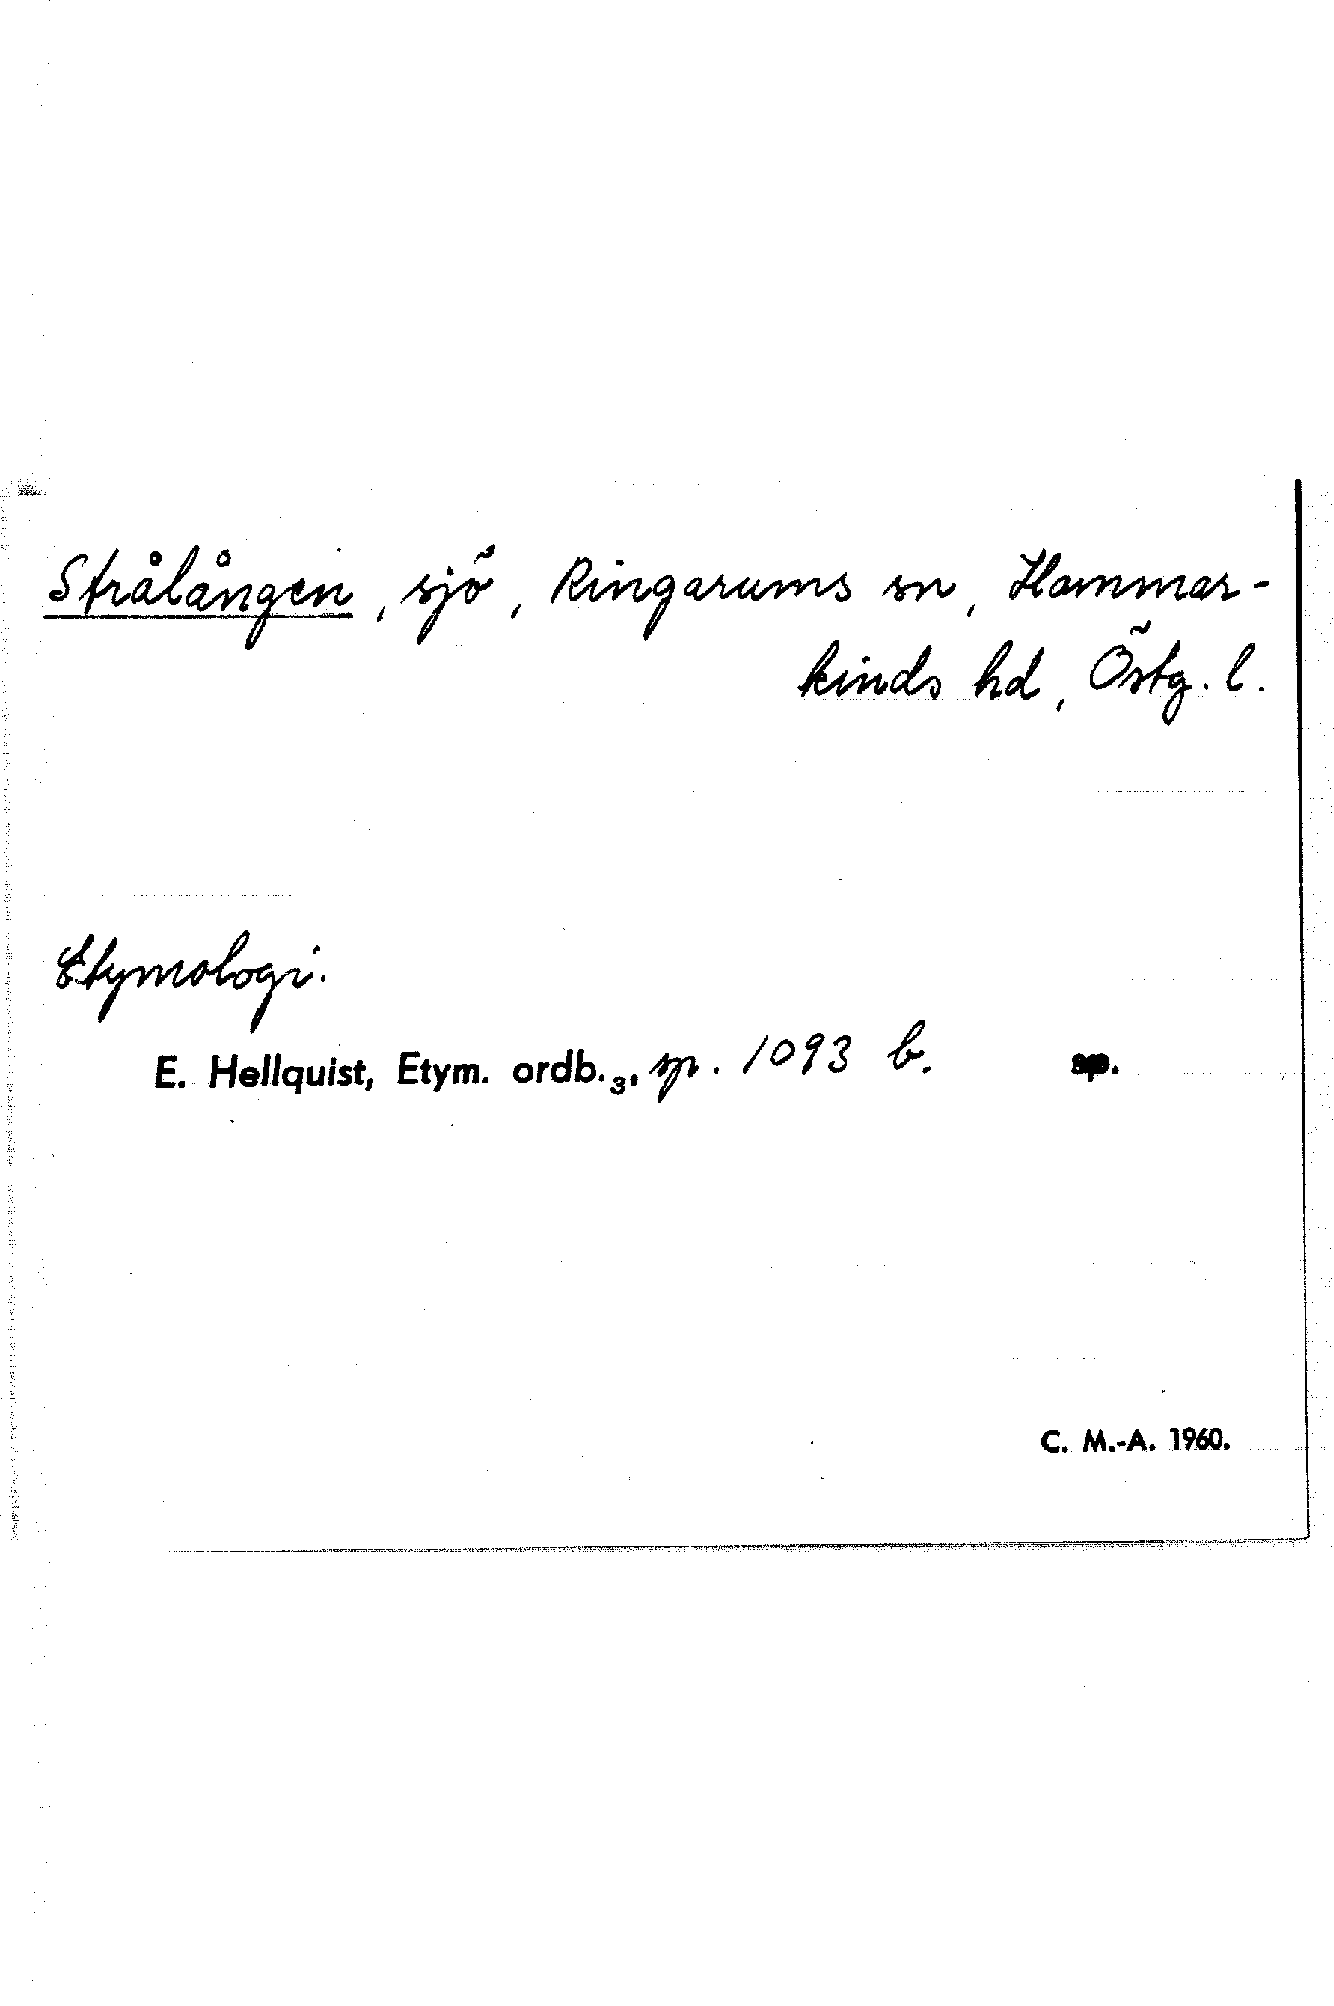 Strålången, sjö, Ringarums sn, Hammar-
kinds hd, Östg. l.
Etymologi.
E. Hellquist, Etym. ordb.₃, sp. 1093 b. sp.
C. M.-A. 1960.